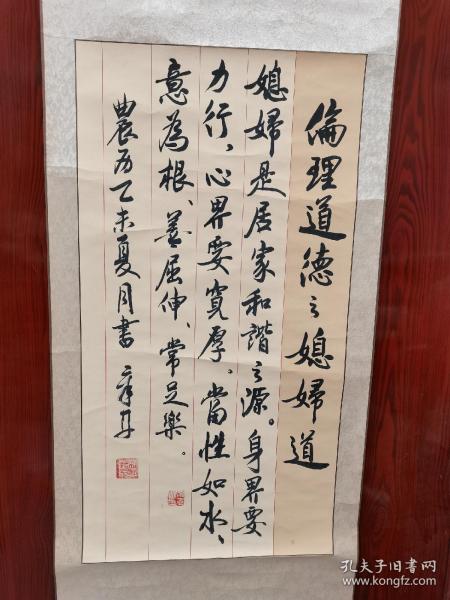 倫理道德之媳婦道
媳婦是居家和諧之源。身界要
力行，心界要寬厚。當性如水、
意為根、善屈伸、常足樂。
農历乙未夏月書
孔夫子旧书网
www.kongfz.com